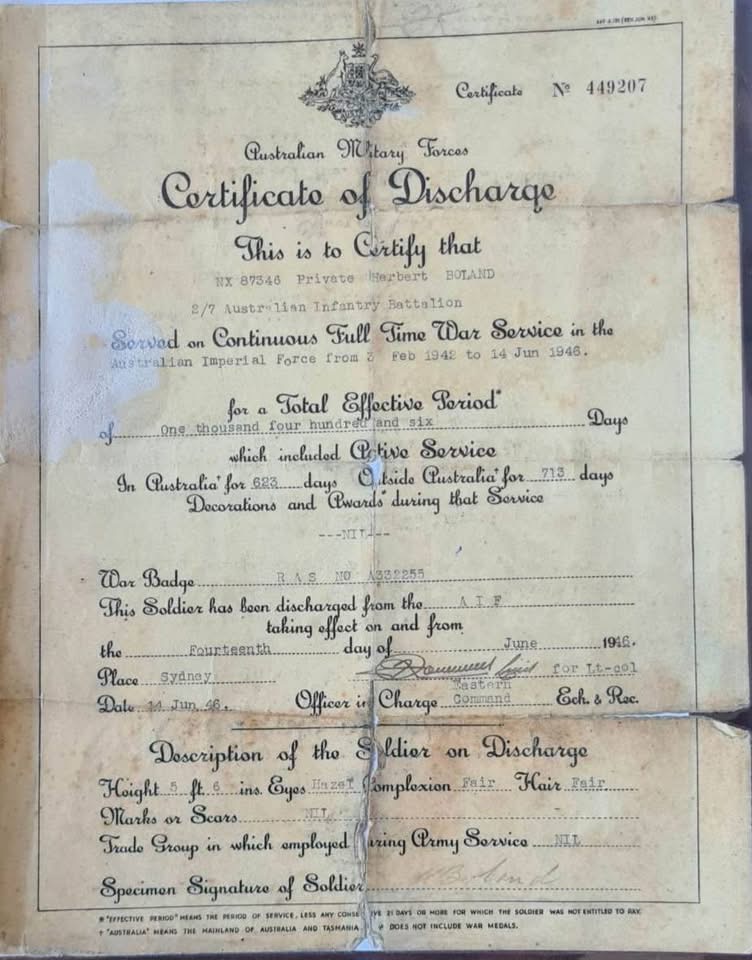 Certificate No 449207
Australian Military Forces
Certificate of Discharge
This is to Certify that
NX 87346 Private Herbert BOLAND
2/7 Australian Infantry Battalion
Served on Continuous Full Time War Service in the
Australian Imperial Force from 3 Feb 1942 to 14 Jun 1946.
for a Total Effective Period*
of One thousand four hundred and six Days
which included Active Service
In Australia† for 623 days Outside Australia† for 713 days
Decorations and Awards# during that Service
---NIL---
War Badge R A S NO A332255
This Soldier has been discharged from the A I F
taking effect on and from
the Fourteenth day of June 1946.
Place Sydney for Lt-col
Eastern
Date 14 Jun 46. Officer in Charge Command Ech. & Rec.
Description of the Soldier on Discharge
Height 5 ft. 6 ins. Eyes Hazel Complexion Fair Hair Fair
Marks or Scars NIL
Trade Group in which employed during Army Service NIL
Specimen Signature of Soldier H Boland
* "EFFECTIVE PERIOD" MEANS THE PERIOD OF SERVICE, LESS ANY CONSECUTIVE 21 DAYS OR MORE FOR WHICH THE SOLDIER WAS NOT ENTITLED TO PAY.
† "AUSTRALIA" MEANS THE MAINLAND OF AUSTRALIA AND TASMANIA. # DOES NOT INCLUDE WAR MEDALS.